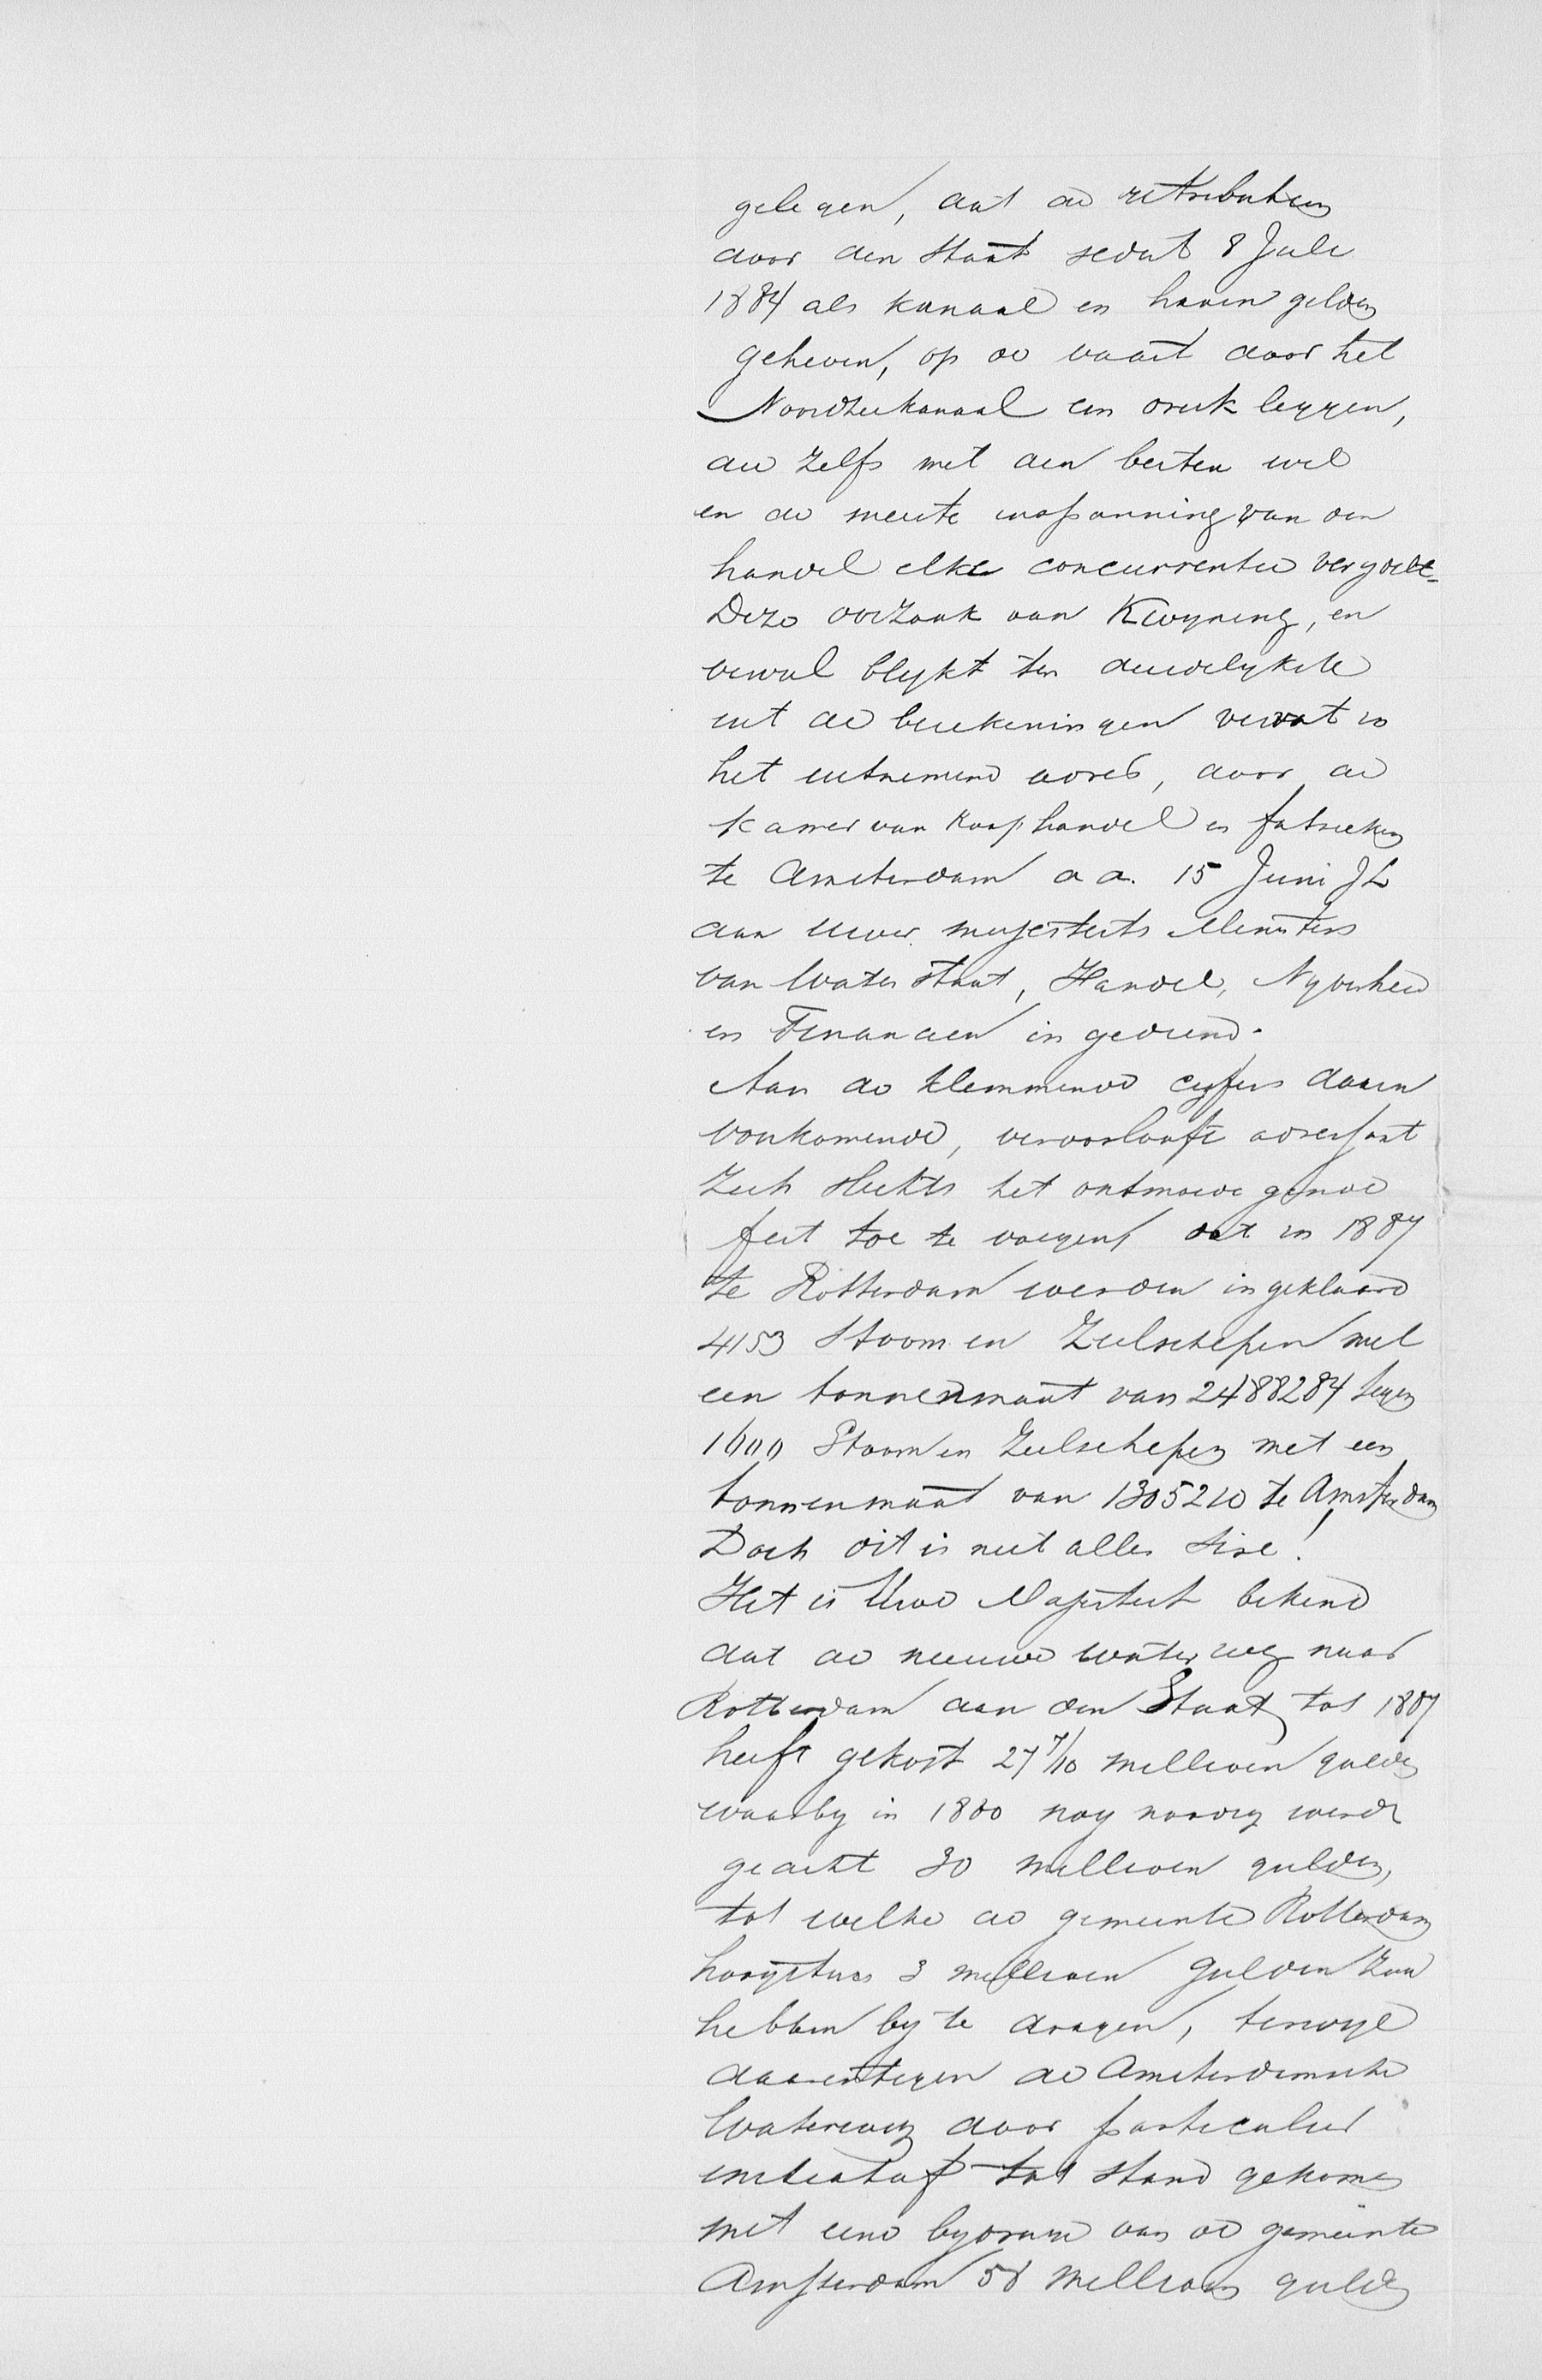 gelegen, dat de retributien
door den Staat sedert 8 Juli
1884 als kanaal en haven gelden
geheven, op de vaart door het
Noordzeekanaal een druk leggen,
die zelfs met den besten wil
en de meeste inspanning van den
handel elke concurrentie verydelt-
Deze oorzaak van Kwyning, en
verval blykt ten duidelykste
uit de berekeningen vervat in
het uitnemend adres, door de
kamer van Koophandel en fabrieken
te Amsterdam d.d. 15 Juni Jl
aan Uwer majesteits Ministers
van Waterstaat, Handel, Nyverheid
en Financien in gediend.
Aan de klemmende cyfers daarin
voorkomende, veroorlooft adressant
zich slechts het ontmoedigende
feit toe te voegen dat in 1887
te Rotterdam werden ingeklaard
4153 Stoom en Zeilschepen met
een tonnenmaat van 2488284 tegen
1600 Stoom en Zeilschepen met een
tonnenmaat van 1305210 te Amsterdam
Doch dit is niet alles Sire!
Het is Uwe Majesteit bekend
dat de nieuwe waterweg naar
Rotterdam aan den Staat tot 1887
heeft gekost 27 7/10 millioen gulden
waarby in 1880 nog noodig werd
geacht 30 millioen gulden,
tot welke de gemeente Rotterdam
hoogstens 3 millioen gulden zou
hebben by te dragen, terwyl
daarentegen de Amsterdamsche
Waterweg door particulier
initiatief tot stand gekomen
met eene bydrage van de gemeente
Amsterdam 58 millioen gulden